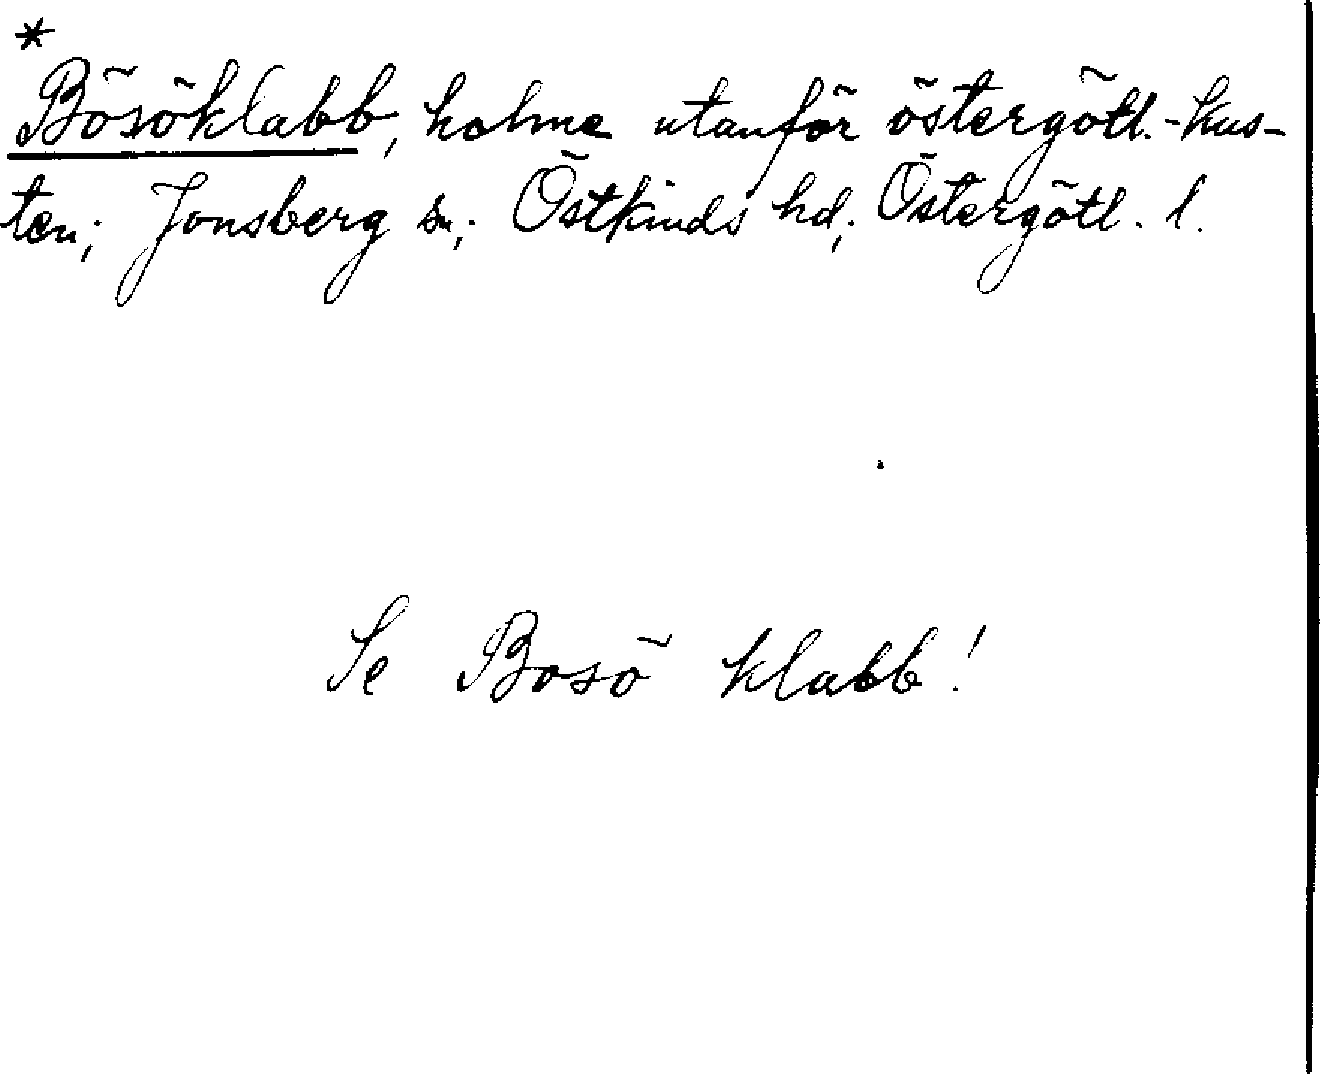 *
Bösöklabb, holme utanför östergötl.-kus-
ten; Jonsberg sn; Östkinds hd; Östergötl. l.
Se Bosö klabb!